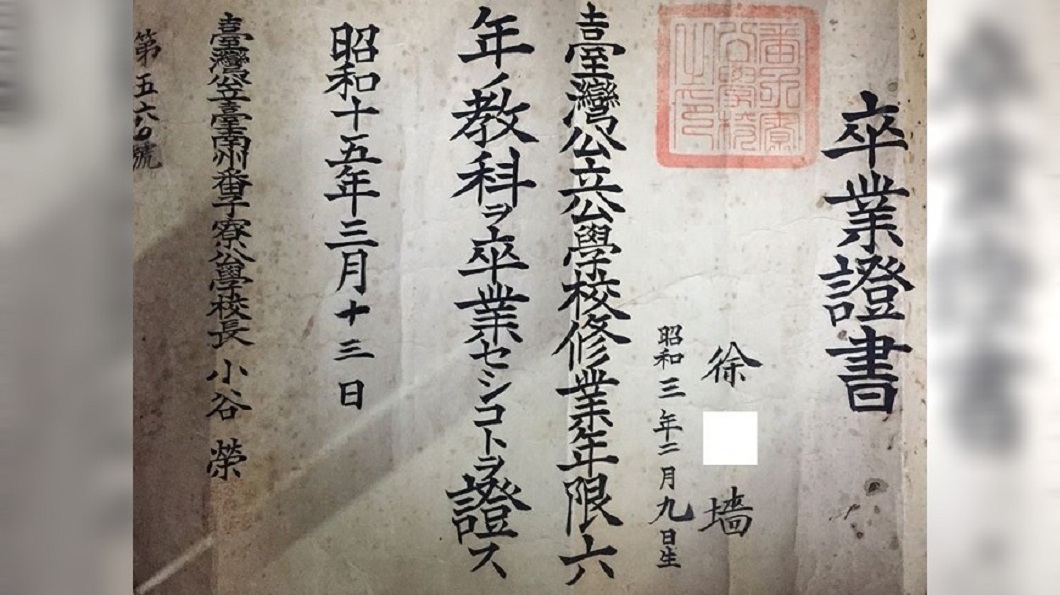 卒業證書
番子寮
公學校
之印
徐 墻
昭和三年二月九日生
臺灣公立公學校修業年限六
年ノ教科ヲ卒業セシコトヲ證ス
昭和十五年三月十三日
臺灣公立臺南州番子寮公學校長 小谷 榮
第五六四號